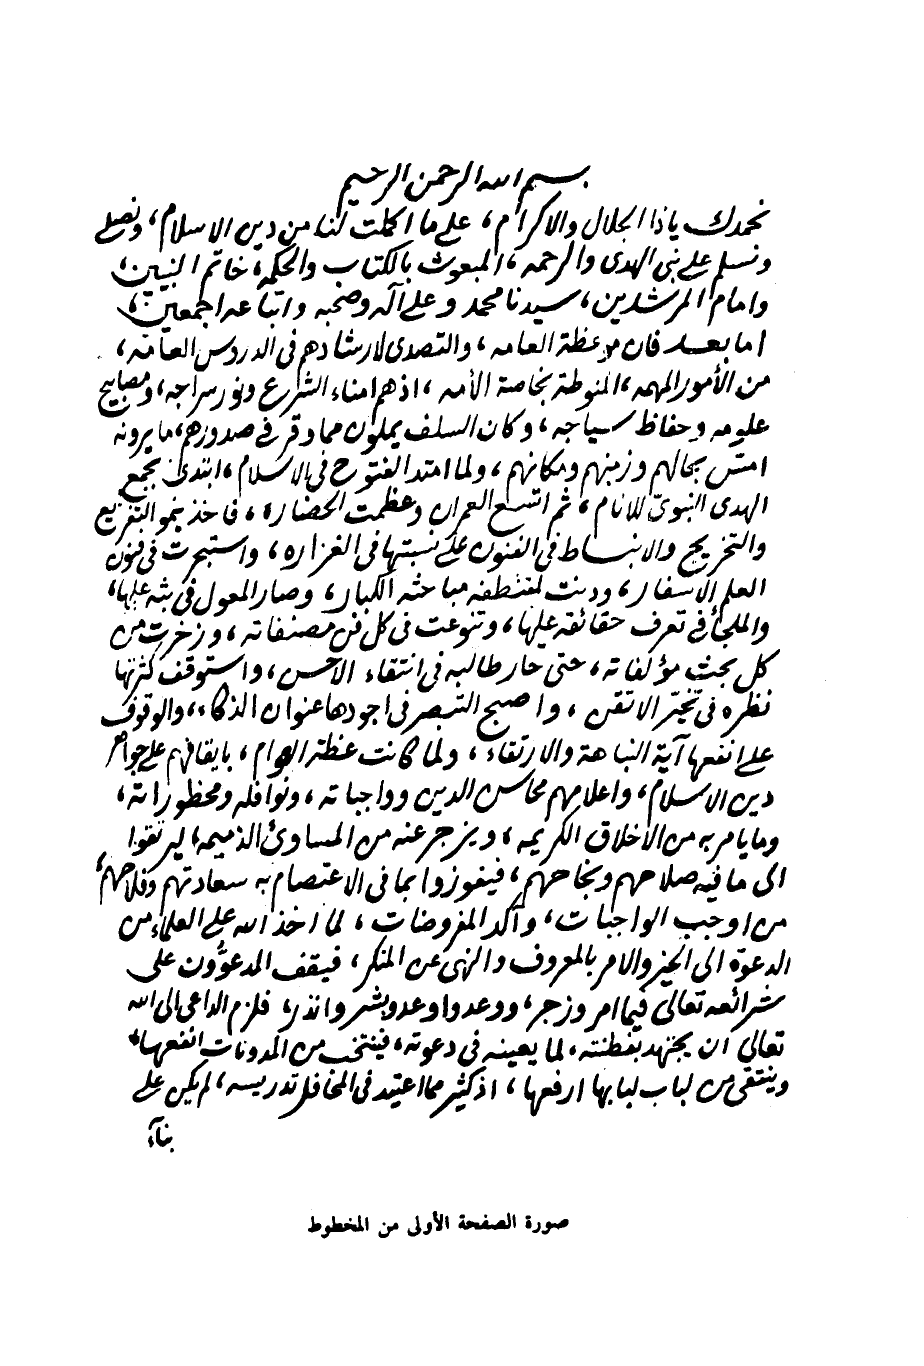 بسم الله الرحمن الرحيم
نحمدك ياذا الجلال والاكرام، على ما اكملت لنا من دين الاسلام، ونصلي
ونسلم على نبي الهدى والرحمه، المبعوث بالكتاب والحكمه، خاتم النبيين،
وامام المرشدين، سيدنا محمد وعلى آله وصحبه واتباعه اجمعين،
اما بعد فان موعظة العامه، والتصدى لارشادهم في الدروس العامه،
من الأمور المهمه، المنوطة بخاصة الأمه، اذ هم امناء الشرع ونور سراجه، ومصابيح
علومه وحفاظ سياجه، وكان السلف يملون مما وقر في صدورهم، ما يرونه
امس بحالهم وزمنهم ومكانهم، ولما امتد الفتوح في الاسلام، ابتدئ بجمع
الهدى النبوي للانام، ثم اتسع العمران وعظمت الحضاره، فاخذ ينمو التفريع
والتخريج والانبساط في الفنون على نسبتها في الغزاره، واستبحرت في فنون
العلم الاسفار، ودنت لمقتطفه مباحثه الكبار، وصار المعول في بثه عليها،
والملجأ في تعرف حقائقه عليها، وتنوعت في كل فن مصنفاته، وزخرت من
كل بحث مؤلفاته، حتى حار طالبه في انتقاء الاحسن، واستوقف كثرتها
نظره في تخير الاتقن، واصبح التبصر في اجودها عنوان الذكاء، والوقوف
على انفعها آية النباهة والارتقاء، ولما كانت عظة العوام، بايقافهم على جواهر
دين الاسلام، واعلامهم محاسن الدين وواجباته، ونوافله ومحظوراته،
وما يامر به من الاخلاق الكريمه، ويزجر عنه من المساوئ الذميمه، ليرتقوا
الى ما فيه صلاحهم ونجاحهم، فيفوزوا بما في الاعتصام به سعادتهم وفلاحهم،
من اوجب الواجبات، وآكد المفروضات، لما اخذ الله على العلماء من
الدعوة الى الخير والامر بالمعروف والنهي عن المنكر، فيقف المدعوون على
شرائعه تعالى فيما امر وزجر، ووعد واوعد وبشر وانذر، فلزم الداعى الى الله
تعالى ان يجتهد بفطنته، لما يعينه في دعوته، فينتخب من المدونات انفعها،
وينتقي من لباب لبابها ارفعها، اذ كثير مما اعتيد في المحافل تدريسه، لم يكن على
بناء
صورة الصفحة الأولى من المخطوط